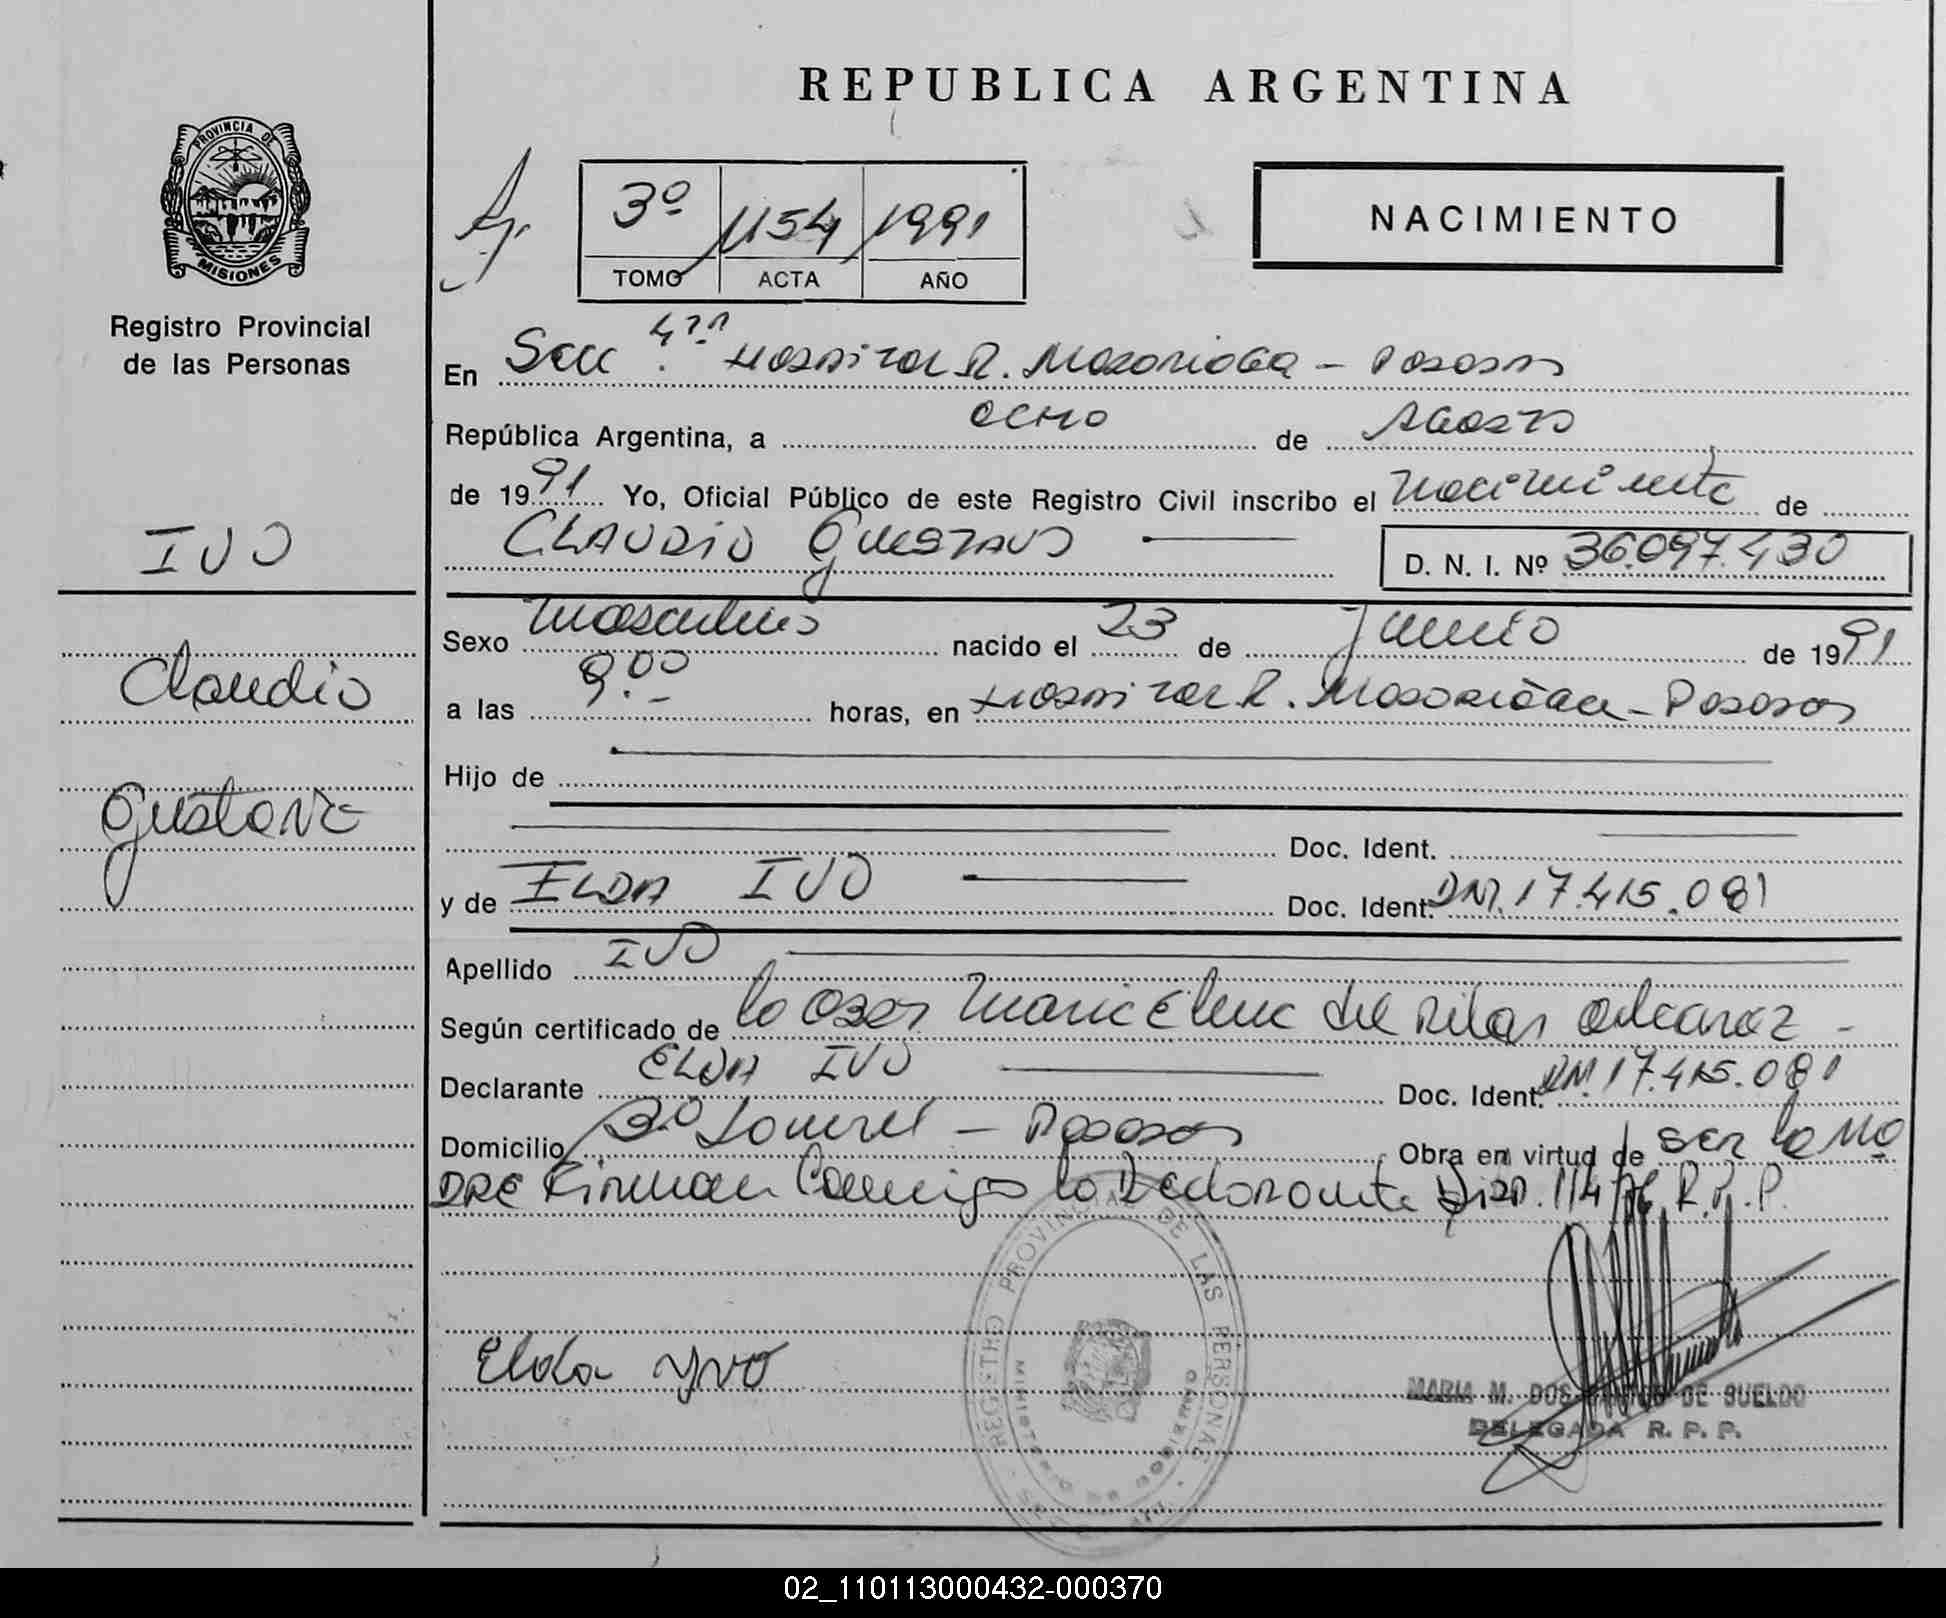 REPUBLICA ARGENTINA
PROVINCIA DE
MISIONES
Registro Provincial
de las Personas
3º 1154 1991
TOMO ACTA AÑO
NACIMIENTO
En Secc 4ta Hospital R. Madariaga - Posadas
República Argentina, a ocho de Agosto
de 1991 Yo, Oficial Público de este Registro Civil inscribo el nacimiento de
CLAUDIO GUSTAVO D. N. I. Nº 36.097.430
IVO
Claudio
Gustavo
Sexo masculino nacido el 23 de Junio de 1991
a las 9.00 horas, en Hospital R. Madariaga - Posadas
Hijo de
Doc. Ident.
y de ELDA IVO Doc. Ident. DNI. 17.415.081
Apellido IVO
Según certificado de la Obst Maria Elena del Pilar Alcaraz -
Declarante ELDA IVO Doc. Ident. DNI 17.415.081
Domicilio - Posadas Obra en virtud de ser la Ma
DRE Firman Conmigo la Declarante Disp. 114/ R.P.P.
REGISTRO PROVINCIAL DE LAS PERSONAS
MINISTERIO DE GOBIERNO
Elda Yvo
MARIA M. DOS DE SUELDO
DELEGADA R. P. P.
02_110113000432-000370